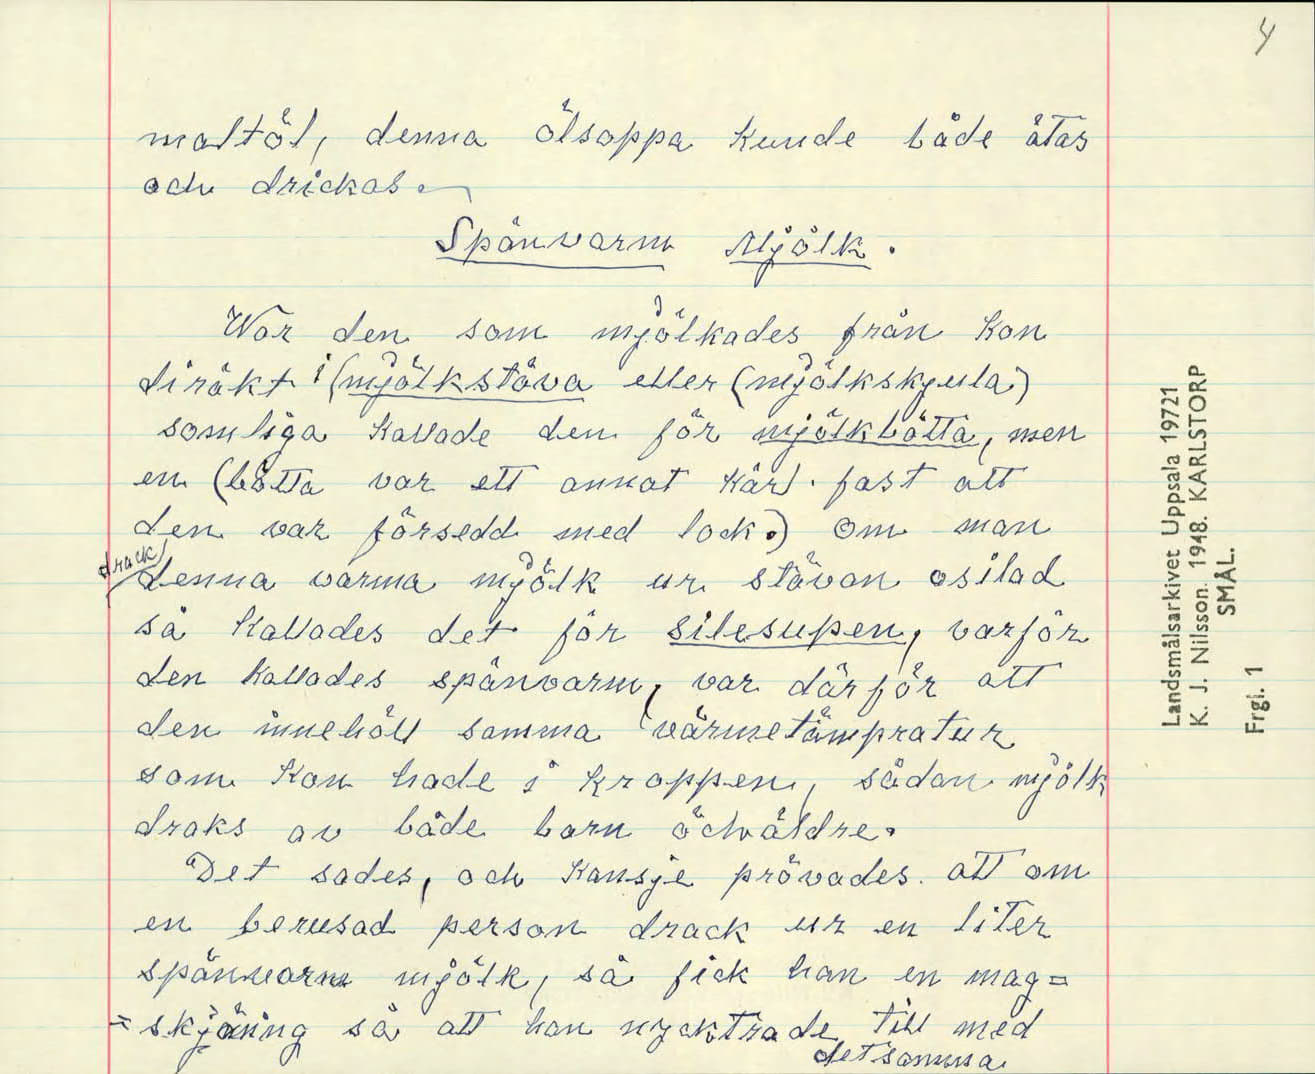 4
maltöl, denna ölsoppa kunde både ätas
och drickas.
Spänvarm Mjölk.
War den som mjölkades från kon
diräkt i (mjölkstäva eller (mjölkskjula)
somliga kallade den för mjölkbötta, men
en (bötta var ett annat kärl. fast att
den var försedd med lock.) Om man
drack
denna varma mjölk ur stävan osilad
så kallades det för silesupen, varför
den kallades spänvarm, var därför att
den innehöll samma värmetämpratur
som kon hade i kroppen, sådan mjölk
draks av både barn och äldre.
Det sades, och kansje prövades. att om
en berusad person drack ur en liter
spänvarm mjölk, så fick han en mag=
=skjöning så att han nycktrade till med
detsamma.
Landsmålsarkivet Uppsala 19721
K. J. Nilsson. 1948. KARLSTORP
SMÅL.
Frgl. 1